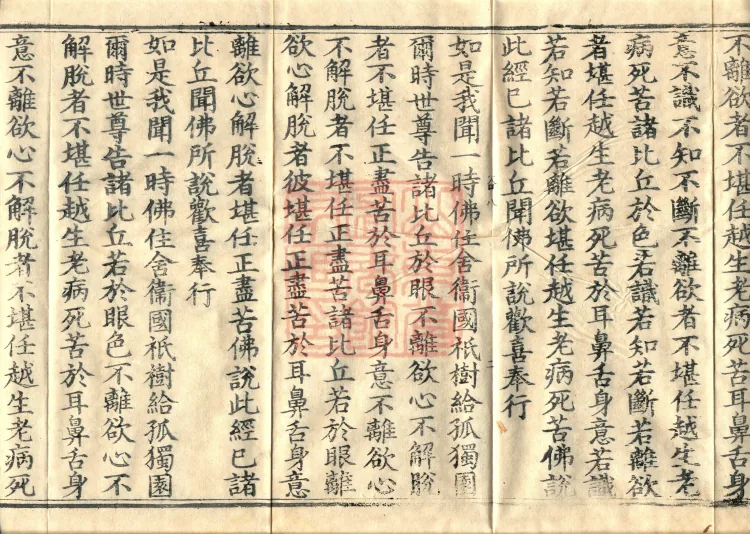 不離欲者不堪任越生老病死苦耳鼻舌身
意不識不知不斷不離欲者不堪任越生老
病死苦諸比丘於色若識若知若斷若離欲
者堪任越生老病死苦於耳鼻舌身意若識
若知若斷若離欲堪任越生老病死苦佛說
此經已諸比丘聞佛所說歡喜奉行
如是我聞一時佛住舍衞國祇樹給孤獨園
爾時世尊告諸比丘於眼不離欲心不解脫
者不堪任正盡苦於耳鼻舌身意不離欲心
不解脫者不堪任正盡苦諸比丘若於眼離
欲心解脫者彼堪任正盡苦於耳鼻舌身意
離欲心解脫者堪任正盡苦佛說此經已諸
比丘聞佛所說歡喜奉行
如是我聞一時佛住舍衞國祇樹給孤獨園
爾時世尊告諸比丘若於眼色不離欲心不
解脫者不堪任越生老病死苦於耳鼻舌身
意不離欲心不解脫者不堪任越生老病死